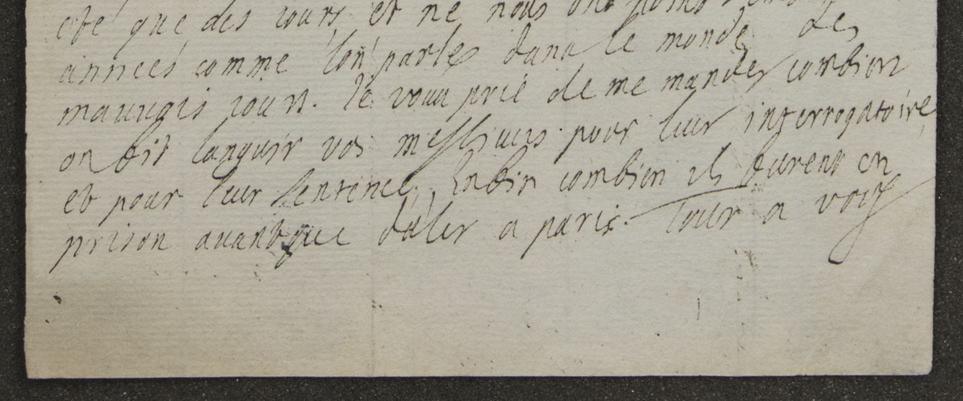 eté que des jours et ne nous ont point
années comme l'on parle dans le monde des
mauvais jours. Je vous prie de me mander combien
on fit languir vos messieurs pour leur interrogatoire
et pour leur sentence, Enfin combien ils furent en
prison avant que d'aler a paris. Tout a vous